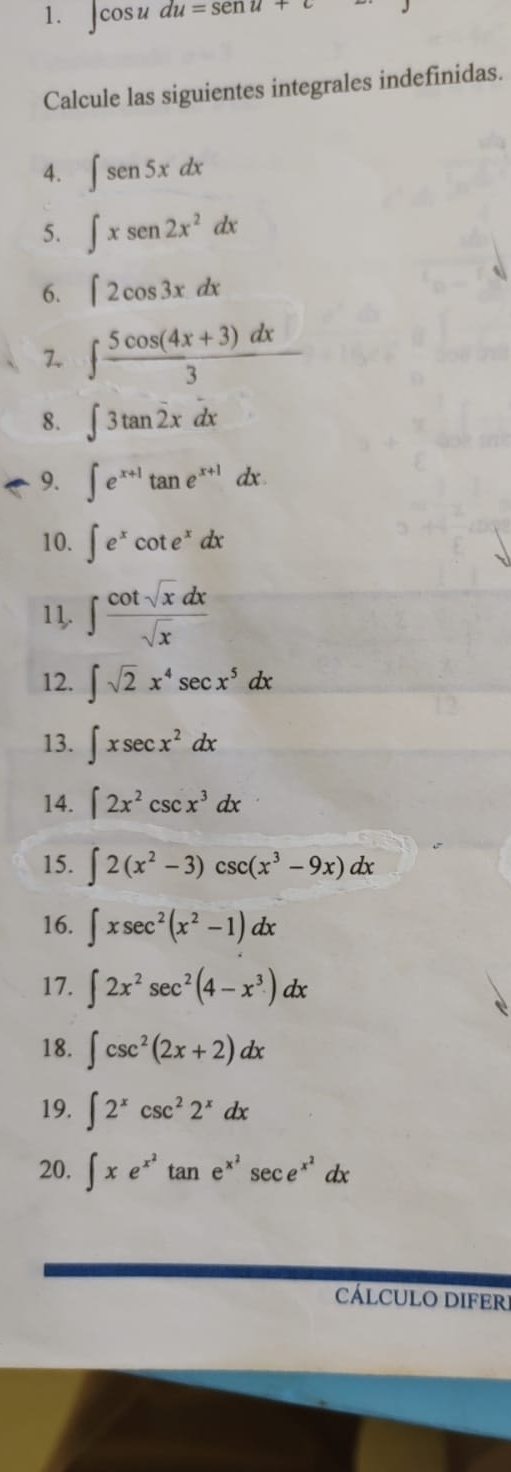 1. ∫cos u du = sen u + c 2. ∫
Calcule las siguientes integrales indefinidas.
4. ∫ sen 5x dx
5. ∫ x sen 2x² dx
6. ∫ 2 cos 3x dx
7. ∫ 5 cos(4x + 3) dx / 3
8. ∫ 3 tan 2x dx
9. ∫ eˣ⁺¹ tan eˣ⁺¹ dx.
10. ∫ eˣ cot eˣ dx
11. ∫ cot √x dx / √x
12. ∫ √2 x⁴ sec x⁵ dx
13. ∫ x sec x² dx
14. ∫ 2x² csc x³ dx
15. ∫ 2(x² − 3) csc(x³ − 9x) dx
16. ∫ x sec²(x² − 1) dx
17. ∫ 2x² sec²(4 − x³) dx
18. ∫ csc²(2x + 2) dx
19. ∫ 2ˣ csc² 2ˣ dx
20. ∫ x e^x² tan e^x² sec e^x² dx
CÁLCULO DIFER